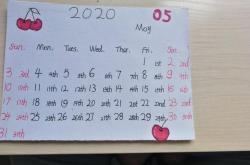 2020 05
May
Sun. Mon. Tues. Wed. Thur. Fri. Sat.
1 1st 2 2nd
3 3rd 4 4th 5 5th 6 6th 7 7th 8 8th 9 9th
10 10th 11 11th 12 12th 13 13th 14 14th 15 15th 16 16th
17 17th 18 18th 19 19th 20 20th 21 21st 22 22nd 23 23rd
24 24th 25 25th 26 26th 27 27th 28 28th 29 29th 30 30th
31 31th